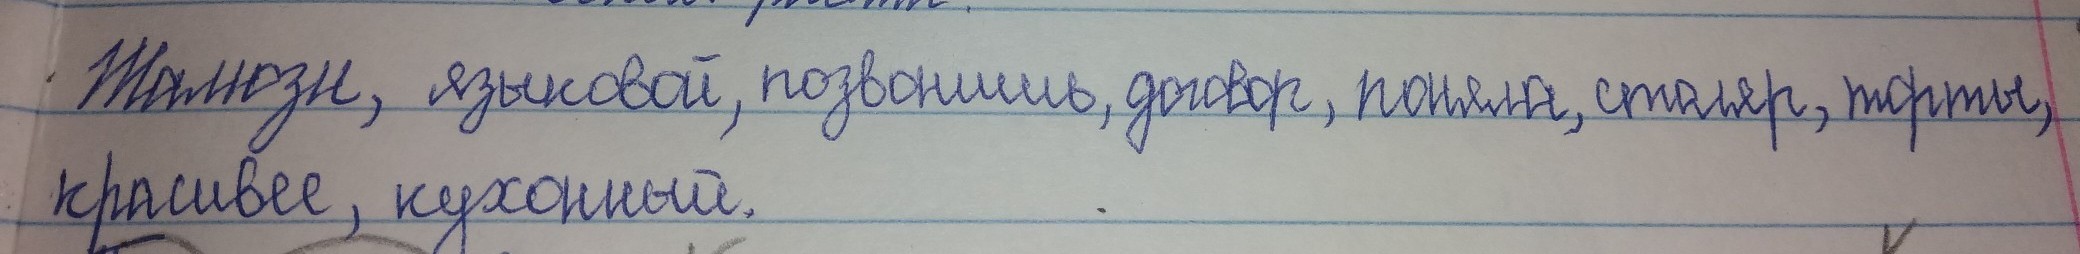 Жалюзи, языковой, позвонишь, договор, поняла, столяр, торты,
красивее, кухонный.